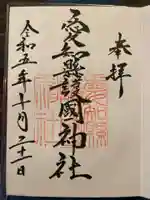 奉拝
愛知縣護國神社
令和五年十月二十一日